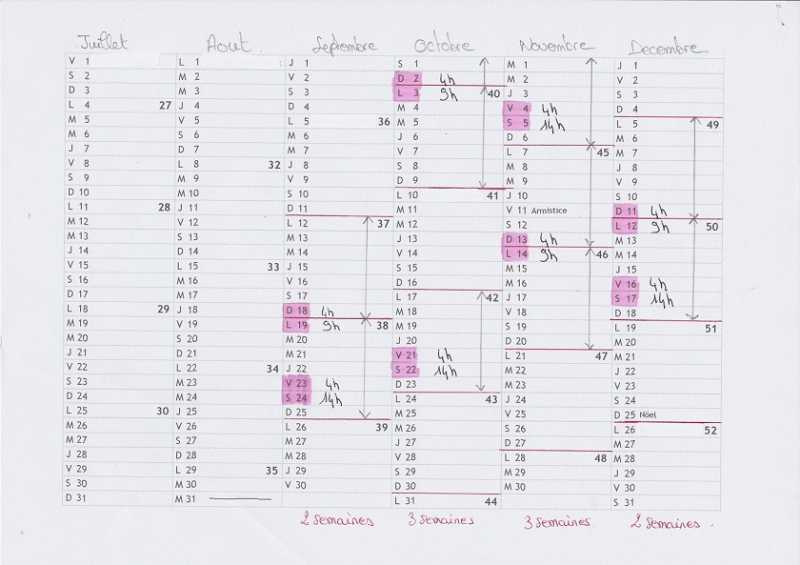 Juillet
V 1
S 2
D 3
L 4 27
M 5
M 6
J 7
V 8
S 9
D 10
L 11 28
M 12
M 13
J 14
V 15
S 16
D 17
L 18 29
M 19
M 20
J 21
V 22
S 23
D 24
L 25 30
M 26
M 27
J 28
V 29
S 30
D 31
Aout
L 1
M 2
M 3
J 4
V 5
S 6
D 7
L 8 32
M 9
M 10
J 11
V 12
S 13
D 14
L 15 33
M 16
M 17
J 18
V 19
S 20
D 21
L 22 34
M 23
M 24
J 25
V 26
S 27
D 28
L 29 35
M 30
M 31
Septembre
J 1
V 2
S 3
D 4
L 5 36
M 6
M 7
J 8
V 9
S 10
D 11
L 12 37
M 13
M 14
J 15
V 16
S 17
D 18 4h
L 19 9h 38
M 20
M 21
J 22
V 23 4h
S 24 14h
D 25
L 26 39
M 27
M 28
J 29
V 30
2 semaines
Octobre
S 1
D 2 4h
L 3 9h 40
M 4
M 5
J 6
V 7
S 8
D 9
L 10 41
M 11
M 12
J 13
V 14
S 15
D 16
L 17 42
M 18
M 19
J 20
V 21 4h
S 22 14h
D 23
L 24 43
M 25
M 26
J 27
V 28
S 29
D 30
L 31 44
3 semaines
Novembre
M 1
M 2
J 3
V 4 4h
S 5 14h
D 6
L 7 45
M 8
M 9
J 10
V 11 Armistice
S 12
D 13 4h
L 14 9h 46
M 15
M 16
J 17
V 18
S 19
D 20
L 21 47
M 22
M 23
J 24
V 25
S 26
D 27
L 28 48
M 29
M 30
3 semaines
Decembre
J 1
V 2
S 3
D 4
L 5 49
M 6
M 7
J 8
V 9
S 10
D 11 4h
L 12 9h 50
M 13
M 14
J 15
V 16 4h
S 17 14h
D 18
L 19 51
M 20
M 21
J 22
V 23
S 24
D 25 Nöel
L 26 52
M 27
M 28
J 29
V 30
S 31
2 semaines.